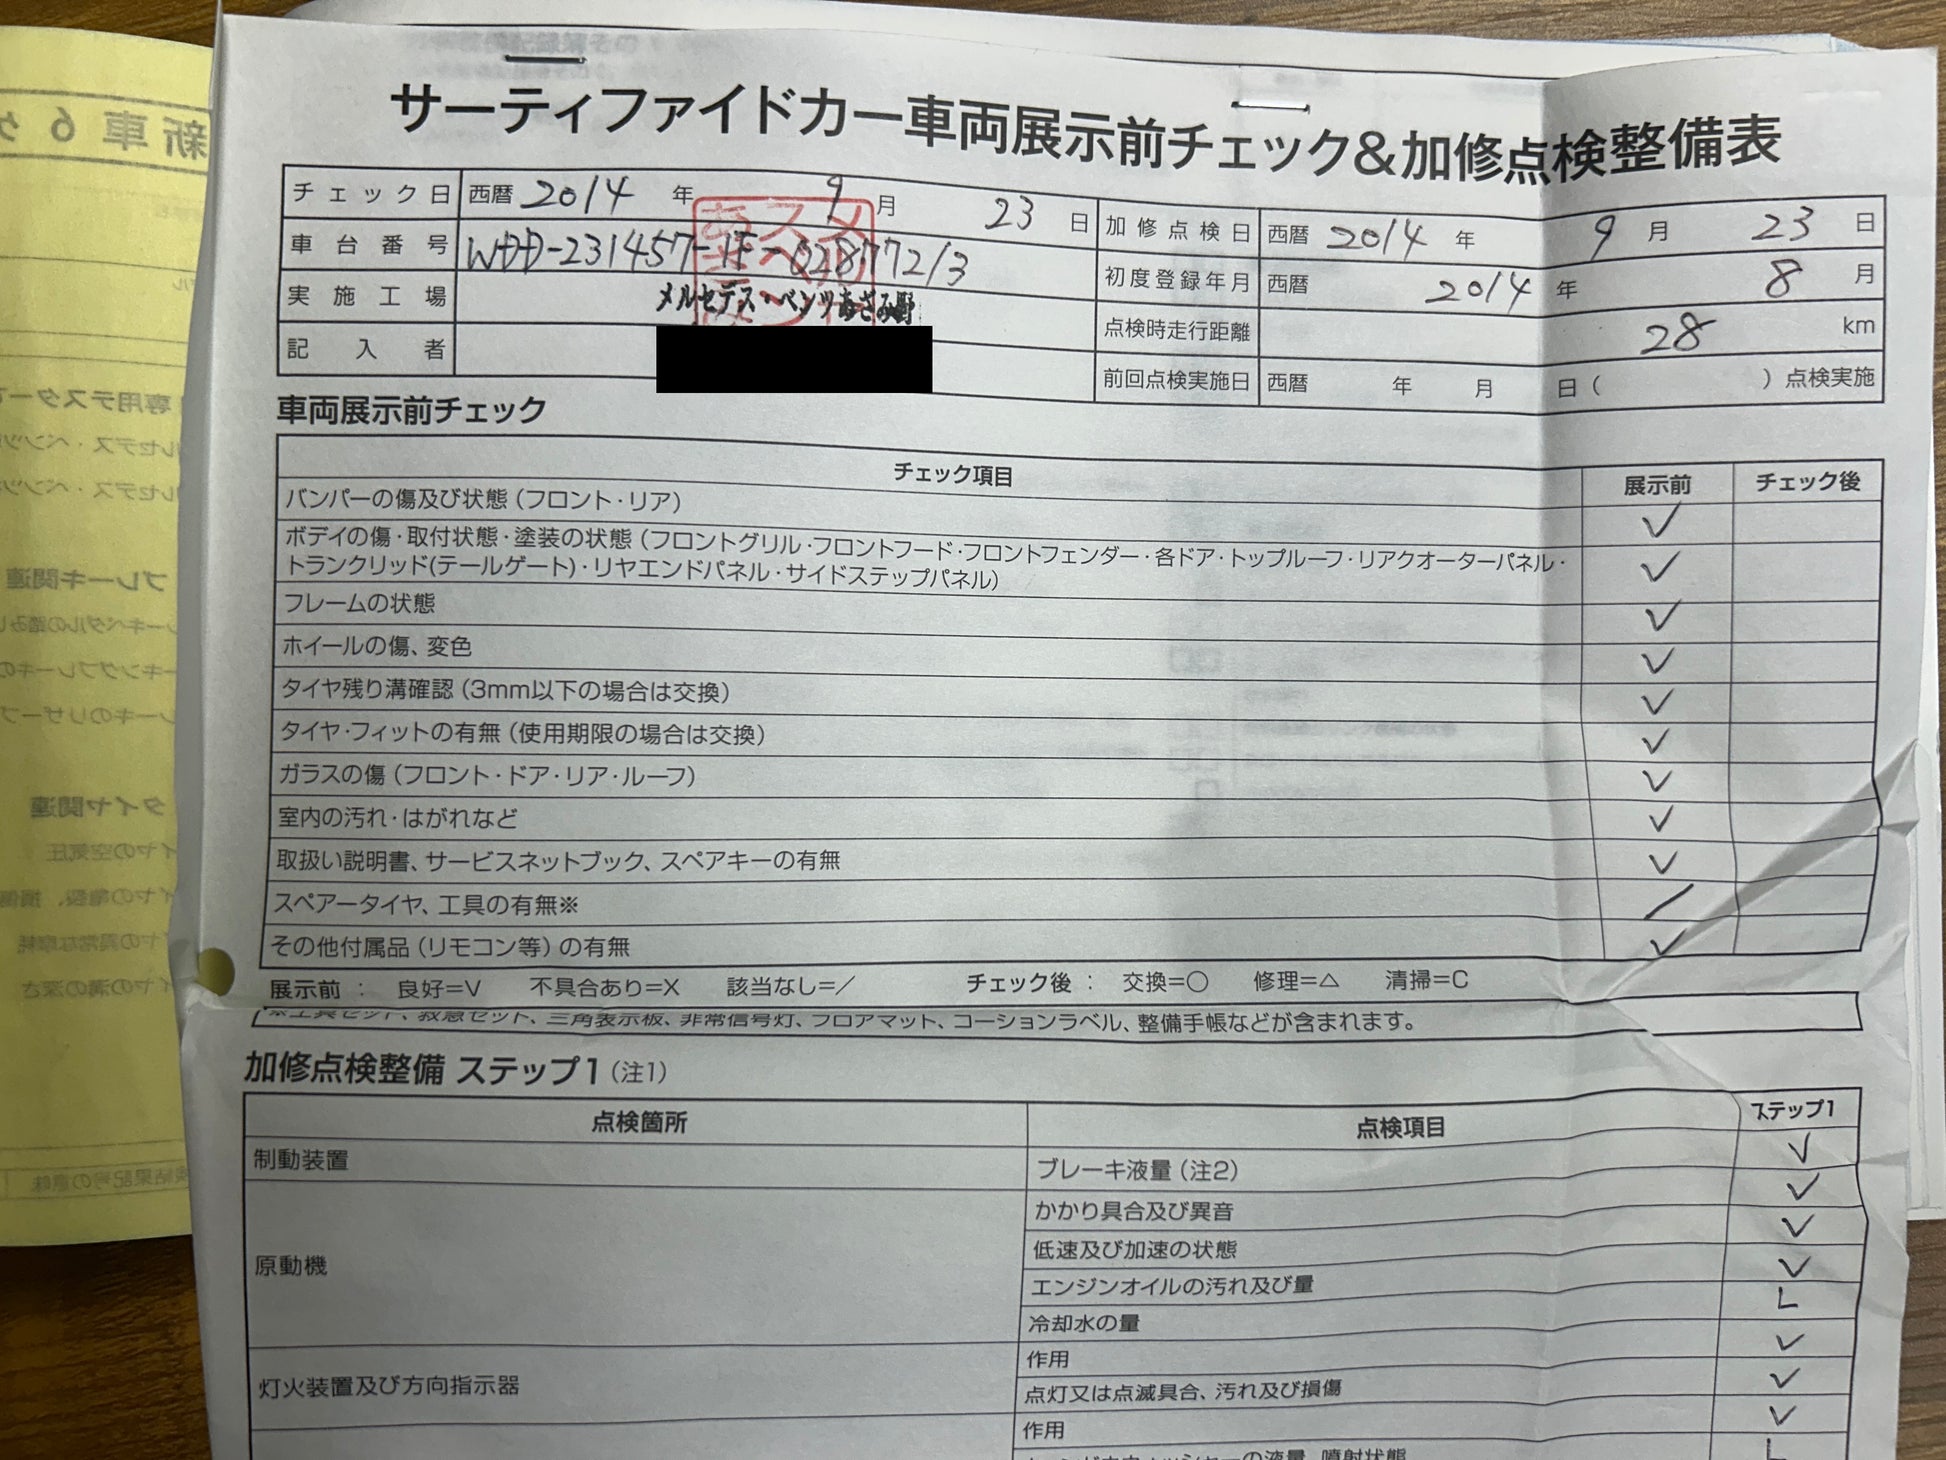 サーティファイドカー車両展示前チェック&加修点検整備表
チェック日 西暦 2014 年 9 月 23 日 加修点検日 西暦 2014 年 9 月 23 日
車台番号 WDD-231457-1F-028772/3 初度登録年月 西暦 2014 年 8 月
実施工場 メルセデス・ベンツあざみ野 点検時走行距離 28 km
記入者 前回点検実施日 西暦 年 月 日( )点検実施
車両展示前チェック
チェック項目 展示前 チェック後
バンパーの傷及び状態(フロント・リア) ✓
ボディの傷・取付状態・塗装の状態(フロントグリル・フロントフード・フロントフェンダー・各ドア・トップルーフ・リアクオーターパネル・
トランクリッド(テールゲート)・リヤエンドパネル・サイドステップパネル) ✓
フレームの状態 ✓
ホイールの傷、変色 ✓
タイヤ残り溝確認(3mm以下の場合は交換) ✓
タイヤ・フィットの有無(使用期限の場合は交換) ✓
ガラスの傷(フロント・ドア・リア・ルーフ) ✓
室内の汚れ・はがれなど ✓
取扱い説明書、サービスネットブック、スペアキーの有無 ✓
スペアータイヤ、工具の有無※ /
その他付属品(リモコン等)の有無 ✓
展示前: 良好=V 不具合あり=X 該当なし=/ チェック後: 交換=○ 修理=△ 清掃=C
※工具セット、救急セット、三角表示板、非常信号灯、フロアマット、コーションラベル、整備手帳などが含まれます。
加修点検整備 ステップ1(注1)
点検箇所 点検項目 ステップ1
制動装置 ブレーキ液量(注2) ✓
原動機 かかり具合及び異音 ✓
低速及び加速の状態 ✓
エンジンオイルの汚れ及び量 ✓
冷却水の量 L
灯火装置及び方向指示器 作用 ✓
点灯又は点滅具合、汚れ及び損傷 ✓
作用 ✓